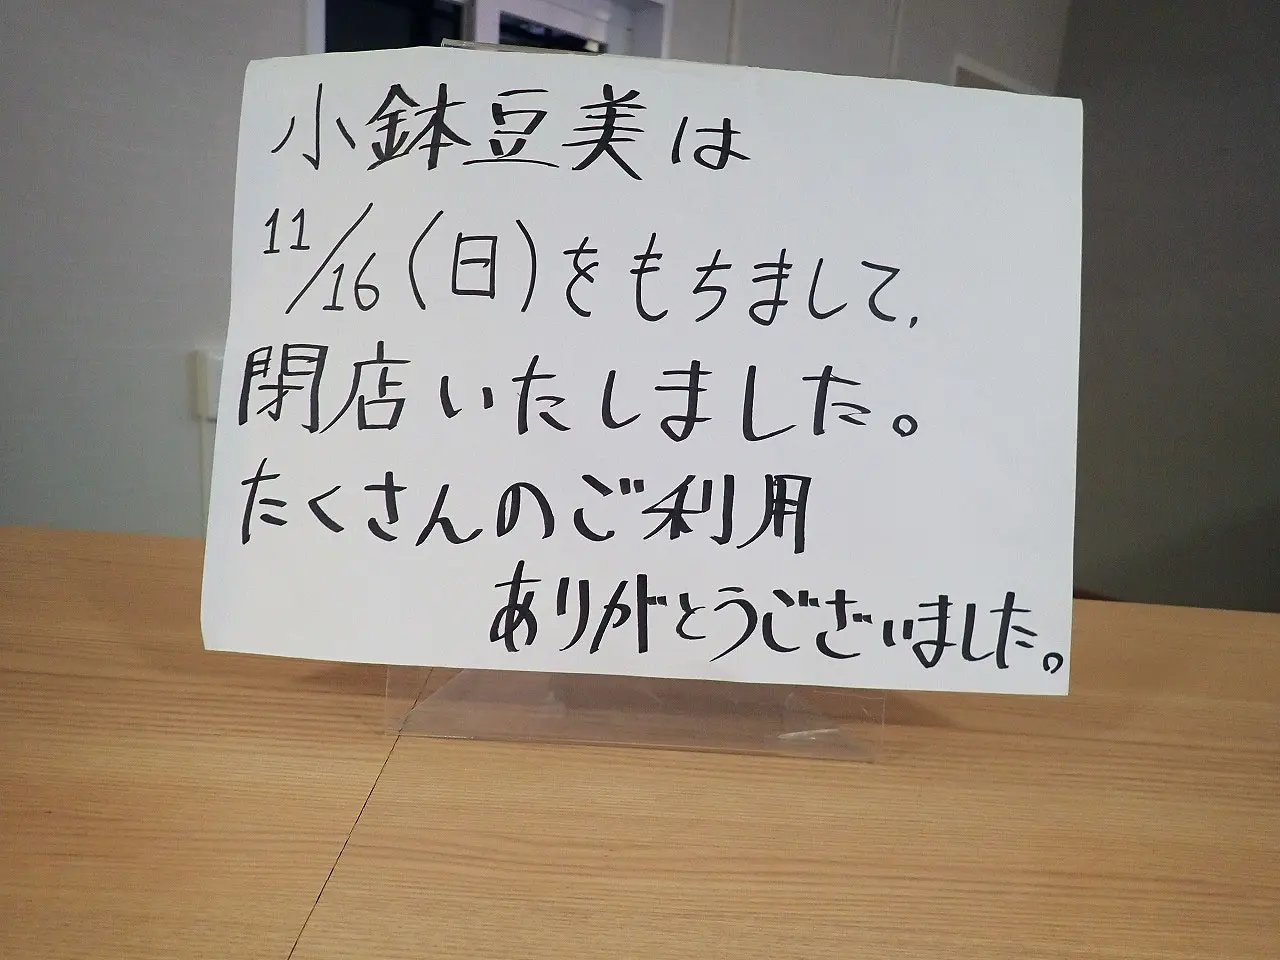 小鉢豆美は
11/16(日)をもちまして,
閉店いたしました。
たくさんのご利用
ありがとうございました。